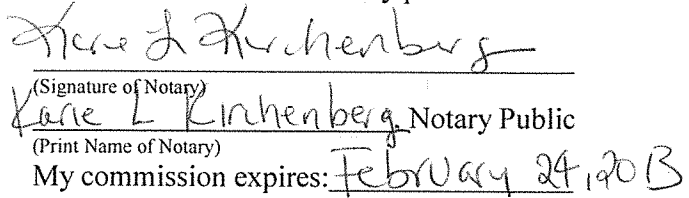 Karie L Kirchenberg
(Signature of Notary)
Karie L Kirchenberg, Notary Public
(Print Name of Notary)
My commission expires: February 24, 2013